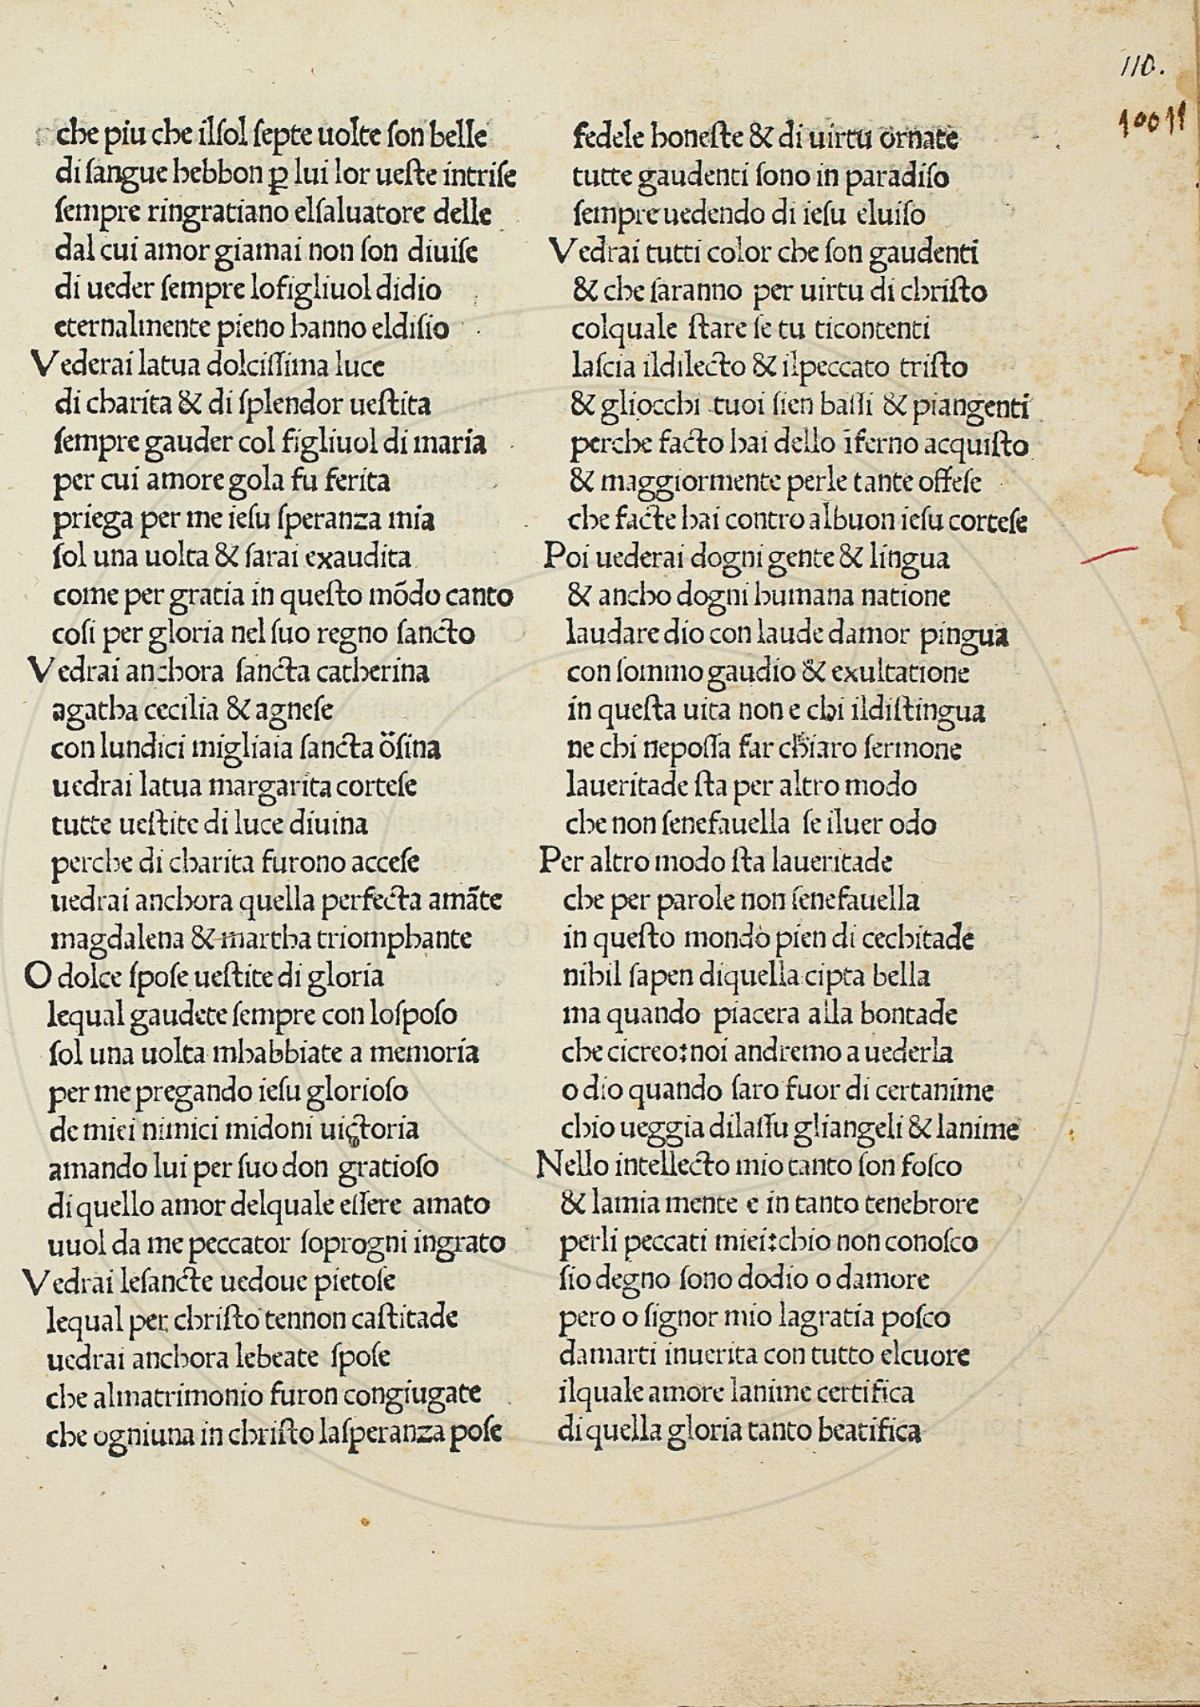 110.
10011
che piu che ilſol ſepte uolte ſon belle
di ſangue hebbon ꝑ lui lor ueſte intriſe
ſempre ringratiano elſaluatore delle
dal cui amor giamai non ſon diuiſe
di ueder ſempre lofigliuol didio
eternalmente pieno hanno eldiſio
Vederai latua dolciſſima luce
di charita & di ſplendor ueſtita
ſempre gauder col figliuol di maria
per cui amore gola fu ferita
priega per me ieſu ſperanza mia
ſol una uolta & ſarai exaudita
come per gratia in queſto mōdo canto
coſi per gloria nel ſuo regno ſancto
Vedrai anchora ſancta catherina
agatha cecilia & agneſe
con lundici migliaia ſancta õſina
uedrai latua margarita corteſe
tutte ueſtite di luce diuina
perche di charita furono acceſe
uedrai anchora quella perfecta amāte
magdalena & martha triomphante
O dolce ſpoſe ueſtite di gloria
lequal gaudete ſempre con loſpoſo
ſol una uolta mhabbiate a memoria
per me pregando ieſu glorioſo
de miei nimici midoni uictoria
amando lui per ſuo don gratioſo
di quello amor delquale eſſere amato
uuol da me peccator ſoprogni ingrato
Vedrai leſancte uedoue pietoſe
lequal per chriſto tennon caſtitade
uedrai anchora lebeate ſpoſe
che almatrimonio furon congiugate
che ogniuna in chriſto laſperanza poſe
fedele honeſte & di uirtu ornate
tutte gaudenti ſono in paradiſo
ſempre uedendo di ieſu eluiſo
Vedrai tutti color che ſon gaudenti
& che ſaranno per uirtu di chriſto
colquale ſtare ſe tu ticontenti
laſcia ildilecto & ilpeccato triſto
& gliocchi tuoi ſien baſſi & piangenti
perche facto hai dello īferno acquiſto
& maggiormente perle tante offeſe
che facte hai contro albuon ieſu corteſe
Poi uederai dogni gente & lingua
& ancho dogni humana natione
laudare dio con laude damor pingua
con ſommo gaudio & exultatione
in queſta uita non e chi ildiſtingua
ne chi nepoſſa far chiaro ſermone
laueritade ſta per altro modo
che non ſenefauella ſe iluer odo
Per altro modo ſta laueritade
che per parole non ſenefauella
in queſto mondo pien di cechitade
nihil ſapen diquella cipta bella
ma quando piacera alla bontade
che cicreo:noi andremo a uederla
o dio quando ſaro fuor di certanime
chio ueggia dilaſſu gliangeli & lanime
Nello intellecto mio tanto ſon foſco
& lamia mente e in tanto tenebrore
perli peccati miei:chio non conoſco
ſio degno ſono dodio o damore
pero o ſignor mio lagratia poſco
damarti inuerita con tutto elcuore
ilquale amore lanime certifica
di quella gloria tanto beatifica